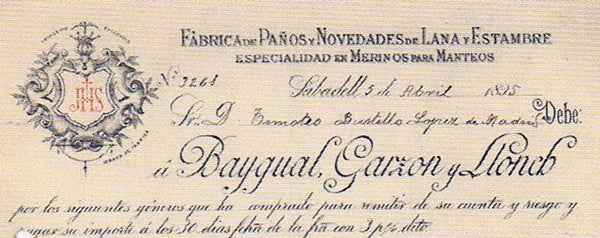 FÁBRICA DE PAÑOS Y NOVEDADES DE LANA Y ESTAMBRE
ESPECIALIDAD EN MERINOS PARA MANTEOS
JHS
Nº 3261 Sabadell, 5 de Abril 1895
Sr. D. Timoteo Bustillo Lopez de Madrid Debe:
á Baygual, Garzon y Llonch
por los siguientes géneros que ha comprado para remitir de su cuenta y riesgo y
pagar su importe á los 30 dias fcha de la fra con 3 p% dto.
MARCA DE FABRICA